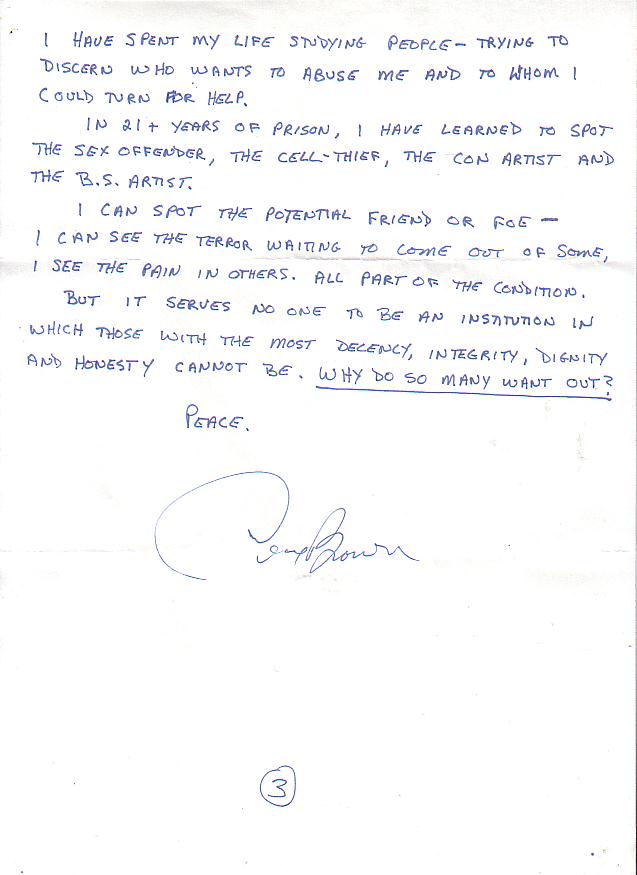 I HAVE SPENT MY LIFE STUDYING PEOPLE - TRYING TO
DISCERN WHO WANTS TO ABUSE ME AND TO WHOM I
COULD TURN FOR HELP.
IN 21+ YEARS OF PRISON, I HAVE LEARNED TO SPOT
THE SEX OFFENDER, THE CELL-THIEF, THE CON ARTIST AND
THE B.S. ARTIST.
I CAN SPOT THE POTENTIAL FRIEND OR FOE -
I CAN SEE THE TERROR WAITING TO COME OUT OF SOME,
I SEE THE PAIN IN OTHERS. ALL PART OF THE CONDITION.
BUT IT SERVES NO ONE TO BE AN INSTITUTION IN
WHICH THOSE WITH THE MOST DECENCY, INTEGRITY, DIGNITY
AND HONESTY CANNOT BE. WHY DO SO MANY WANT OUT?
PEACE.
Brown
3